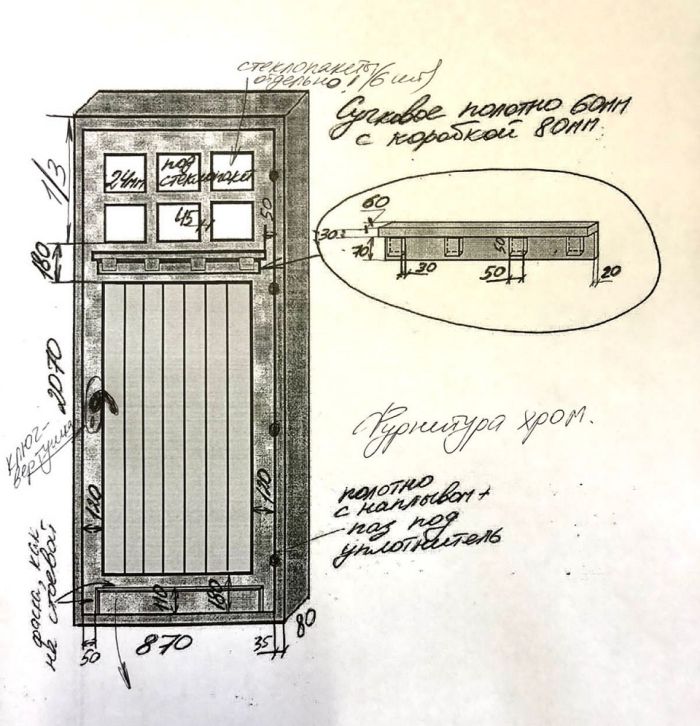 стеклопакеты
отдельно! (6 шт)
Сучковое полотно 60мм
с коробкой 80мм
24мм
под
стеклопакет
45
50
1/3
180
60
30
70
50
30
50
20
2070
ключ-
вертушка
Фурнитура хром.
120
120
полотно
с наплывом +
паз под
уплотнитель
фаска, как
на стоевой
110
180
50
870
35
80